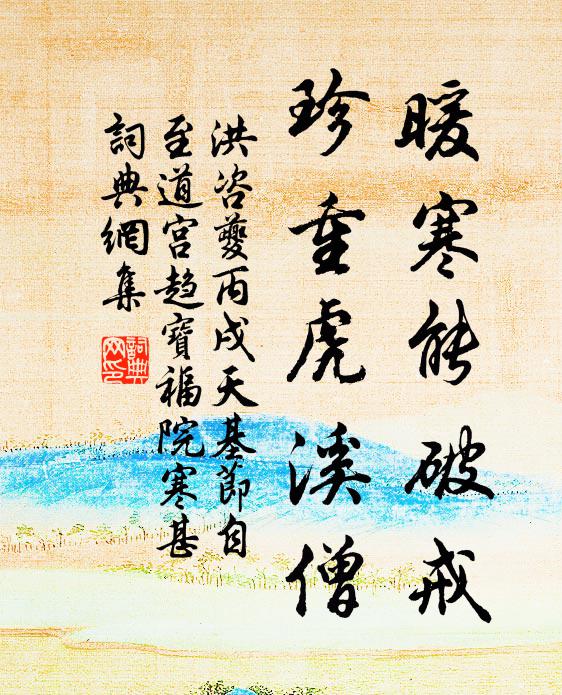 暖寒能破戒
珍重虎溪僧
洪咨夔丙戌天基節自
至道宮趋寶福院寒甚
詞典網集
詞典网印